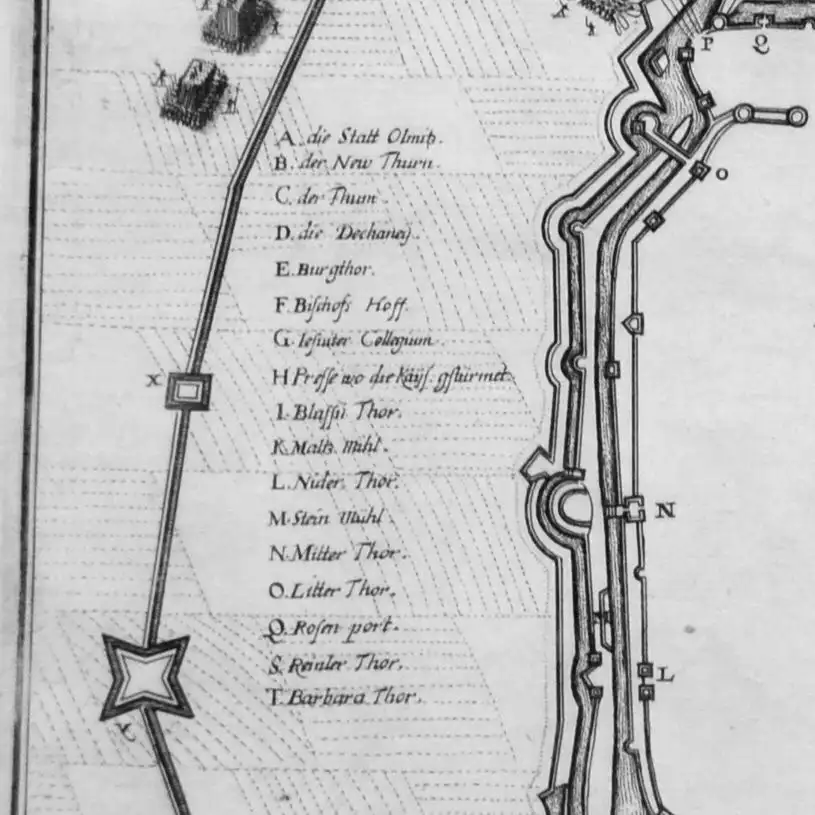 P Q
A. die Statt Olmitz.
B. der New Thurn.
C. der Thum
D. die Dechaneÿ.
E. Burgthor.
F. Biſchofs Hoff.
G. Ieſuiter Collegium.
H Preſſe wo die Kaÿſ. gſtürmet.
I. Blaſſii Thor.
K. Maltz Mühl.
L. Nider. Thor.
M. Stein Mühl.
N. Mitter Thor.
O. Litter Thor.
Q. Roſen port.
S. Reinler Thor.
T. Barbara Thor.
O
X
N
L